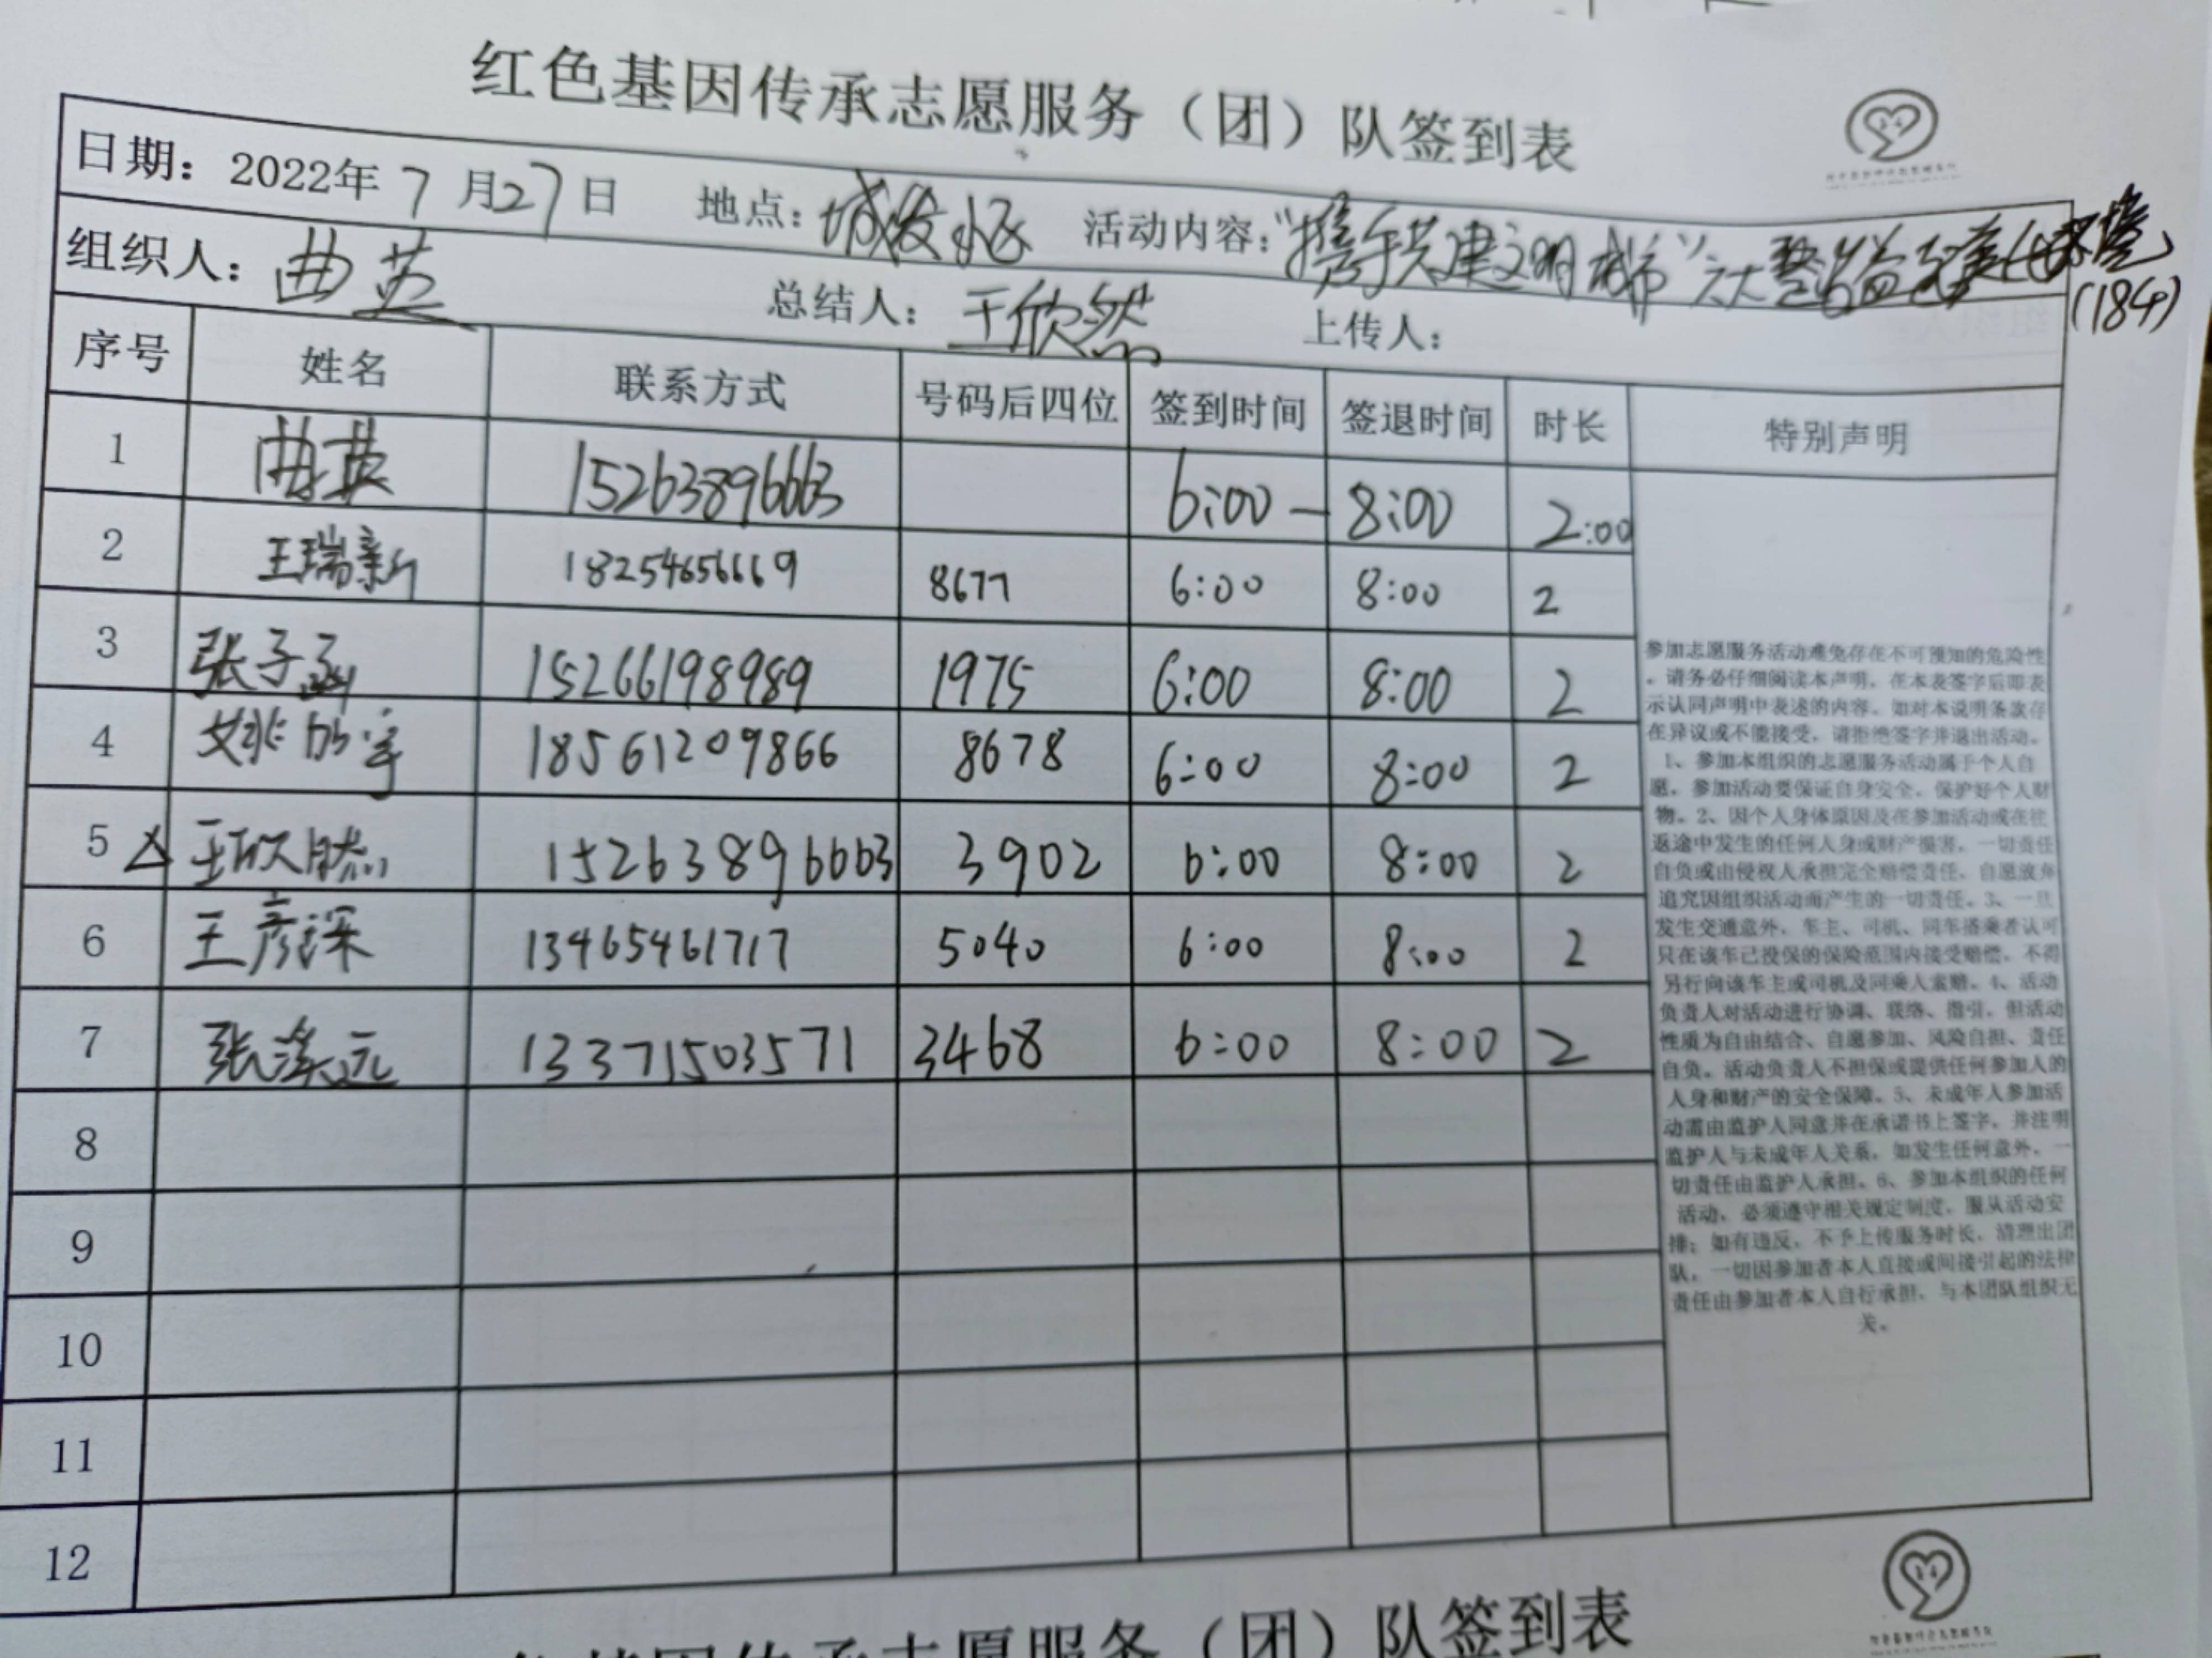 红色基因传承志愿服务（团）队签到表
日期：2022年7月27日 地点：城发小区 活动内容：“携手共建文明城市”
(184)
组织人：曲英 总结人：王欣然 上传人：
序号 姓名 联系方式 号码后四位 签到时间 签退时间 时长 特别声明
1 曲英 15263896663 6:00 — 8:00 2:00
2 王瑞新 18254656669 8677 6:00 8:00 2
3 张子涵 15266198989 1975 6:00 8:00 2
4 姚昕宇 18561209866 8678 6:00 8:00 2
5 △ 王欣然 15263896663 3902 6:00 8:00 2
6 王彦深 13465461717 5040 6:00 8:00 2
7 张溪远 13371503571 3468 6:00 8:00 2
8
9
10
11
12
参加志愿服务活动难免存在不可预知的危险性
，请务必仔细阅读本声明。在本表签字后即表
示认同声明中表述的内容。如对本说明条款存
在异议或不能接受，请拒绝签字并退出活动。
1、参加本组织的志愿服务活动属于个人自
愿，参加活动要保证自身安全，保护好个人财
物。2、因个人身体原因及在参加活动或在往
返途中发生的任何人身或财产损害，一切责任
自负或由侵权人承担完全赔偿责任，自愿放弃
追究因组织活动而产生的一切责任。3、一旦
发生交通意外，车主、司机、同车搭乘者认可
只在该车已投保的保险范围内接受赔偿，不得
另行向该车主或司机及同乘人索赔。4、活动
负责人对活动进行协调、联络、指引，但活动
性质为自由结合、自愿参加、风险自担、责任
自负。活动负责人不担保或提供任何参加人的
人身和财产的安全保障。5、未成年人参加活
动需由监护人同意并在承诺书上签字，并注明
监护人与未成年人关系，如发生任何意外，一
切责任由监护人承担。6、参加本组织的任何
活动，必须遵守相关规定制度，服从活动安
排；如有违反，不予上传服务时长，清理出团
队，一切因参加者本人直接或间接引起的法律
责任由参加者本人自行承担，与本团队组织无
关。
色基因传承志愿服务（团）队签到表